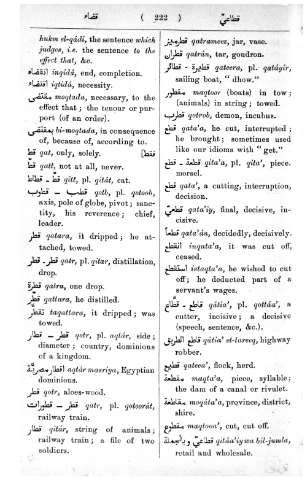 قضاء ( 222 ) قطاعيّ
hukm el-qâdi, the sentence which
judges, i.e. the sentence to the
effect that, &c.
اقتضاء inqidâ, end, completion.
اقتضاء iqtidâ, necessity.
مقتضى maqtada, necessary, to the
effect that; the tenour or pur-
port (of an order).
بمقتضى bi-moqtada, in consequence
of, because of, according to.
قط qat, only, solely. [فقط
قط qatt, not at all, never.
قط - قطاط qitt, pl. qitât, cat.
قطب - قتاوب qotb, pl. qotoob,
axis, pole of globe, pivot; sanc-
tity, his reverence; chief,
leader.
قطر qatara, it dripped; he at-
tached, towed.
قطر qatr, pl. qitar, distillation,
drop.
قطرة qatra, one drop.
قطر qattara, he distilled.
تقطر taqattara, it dripped; was
towed.
قطر - قطار qotr, pl. aqtâr, side;
diameter; country, dominions
of a kingdom.
اقطار مصريّة aqtâr masriya, Egyptian
dominions.
قطر qotr, aloes-wood.
قطر - قطورات qatr, pl. qotoorât,
railway train.
قطار qitâr, string of animals;
railway train; a file of two
soldiers.
قطرميز qatrameez, jar, vase.
قطران qatrân, tar, goudron.
قطيرة - قطائر qateera, pl. qatâyir,
sailing boat, "dhow."
مقطور maqtoor (boats) in tow;
(animals) in string; towed.
قطرب qotrob, demon, incubus.
قطع qata'a, he cut, interrupted;
he brought; sometimes used
like our idioms with "get."
قطعة - قطع qita'a, pl. qita', piece,
morsel.
قطع qata', a cutting, interruption,
decision.
قطعيّ qata'iy, final, decisive, in-
cisive.
قطعًا qata'ân, decidedly, decisively.
انقطع inqata'a, it was cut off,
ceased.
استقطع istaqta'a, he wished to cut
off; he deducted part of a
servant's wages.
قاطع - قطّاع qâtia', pl. qottâa', a
cutter, incisive; a decisive
(speech, sentence, &c.).
قاطع الطريق qâtia' et-tareeq, highway
robber.
قطيع qateea', flock, herd.
مقطعة maqta'a, piece, syllable;
the dam of a canal or rivalet.
مقاطعة moqâta'a, province, district,
shire.
مقطوع maqtooa', cut, cut off.
قطاعي وبالجملة qitâa'iy wa bil-jumla,
retail and wholesale.